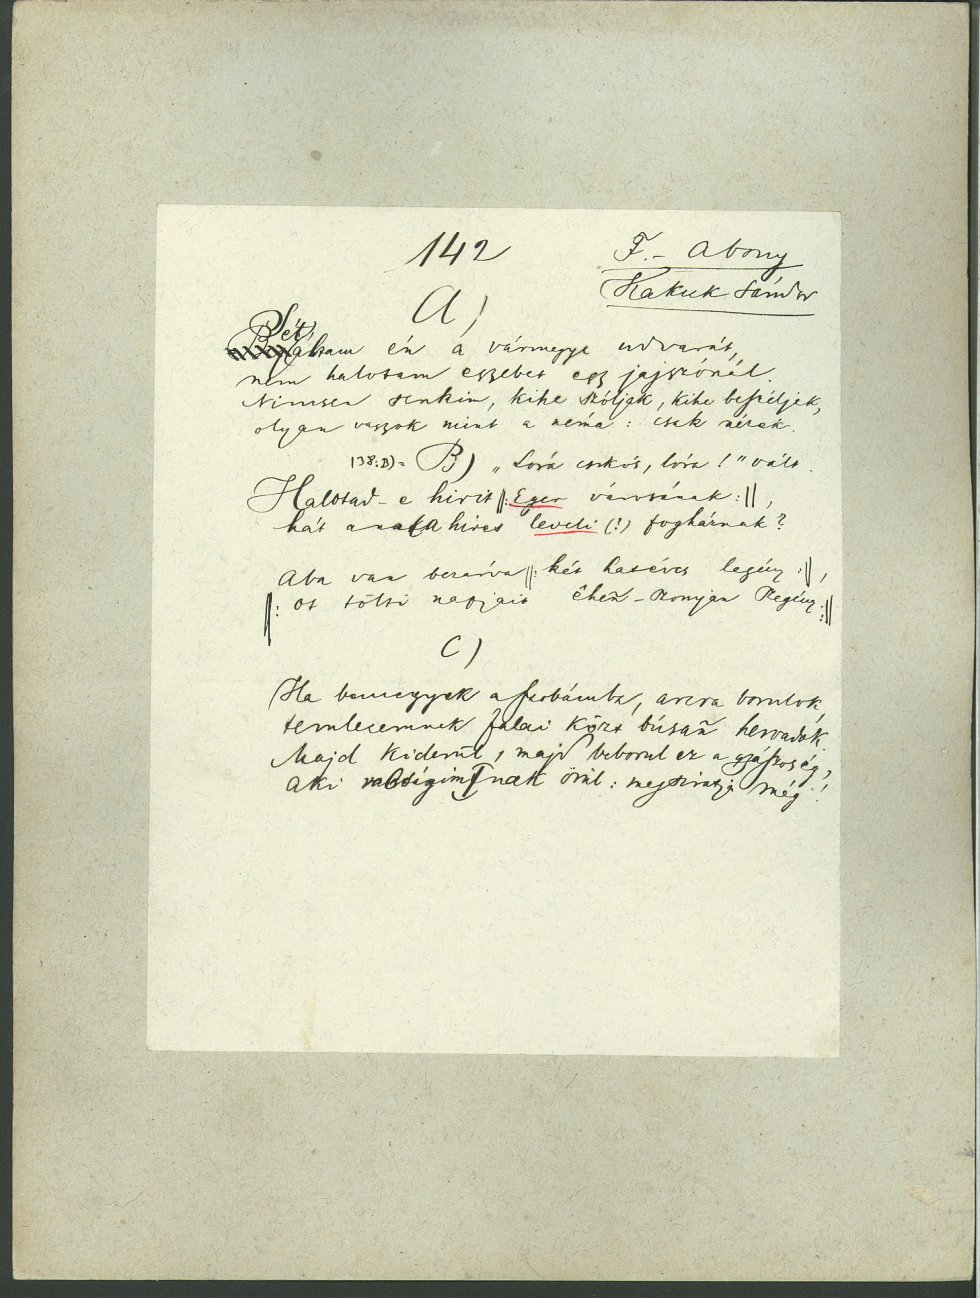 142
F.- Abony
Kakuk Sándor
A)
Sét,
én a vármegye udvarát,
nem halotam eggebet egy jajszónál.
Nincsen senkim, kihe szóljak, kihe beszéljek,
olyan vagyok mint a néma: csak nézek.
138:B)= B) „Lóra csikós, lóra!" vált.
Halotad-e hirit ||: Eger városának :||,
hát a híres leveli (!) fogháznak?
Aba van bezárva ||: két hatéves legény :||,
||: ot tölti napjait éhen-szonyan szegény :||
C)
Ha bemegyek a szobámba, arcra borulok,
temlecemnek falai közt búsan hervadok.
Majd kiderül, majd beborul ez a gyászos ég,
aki nak örül: megsiratja még!